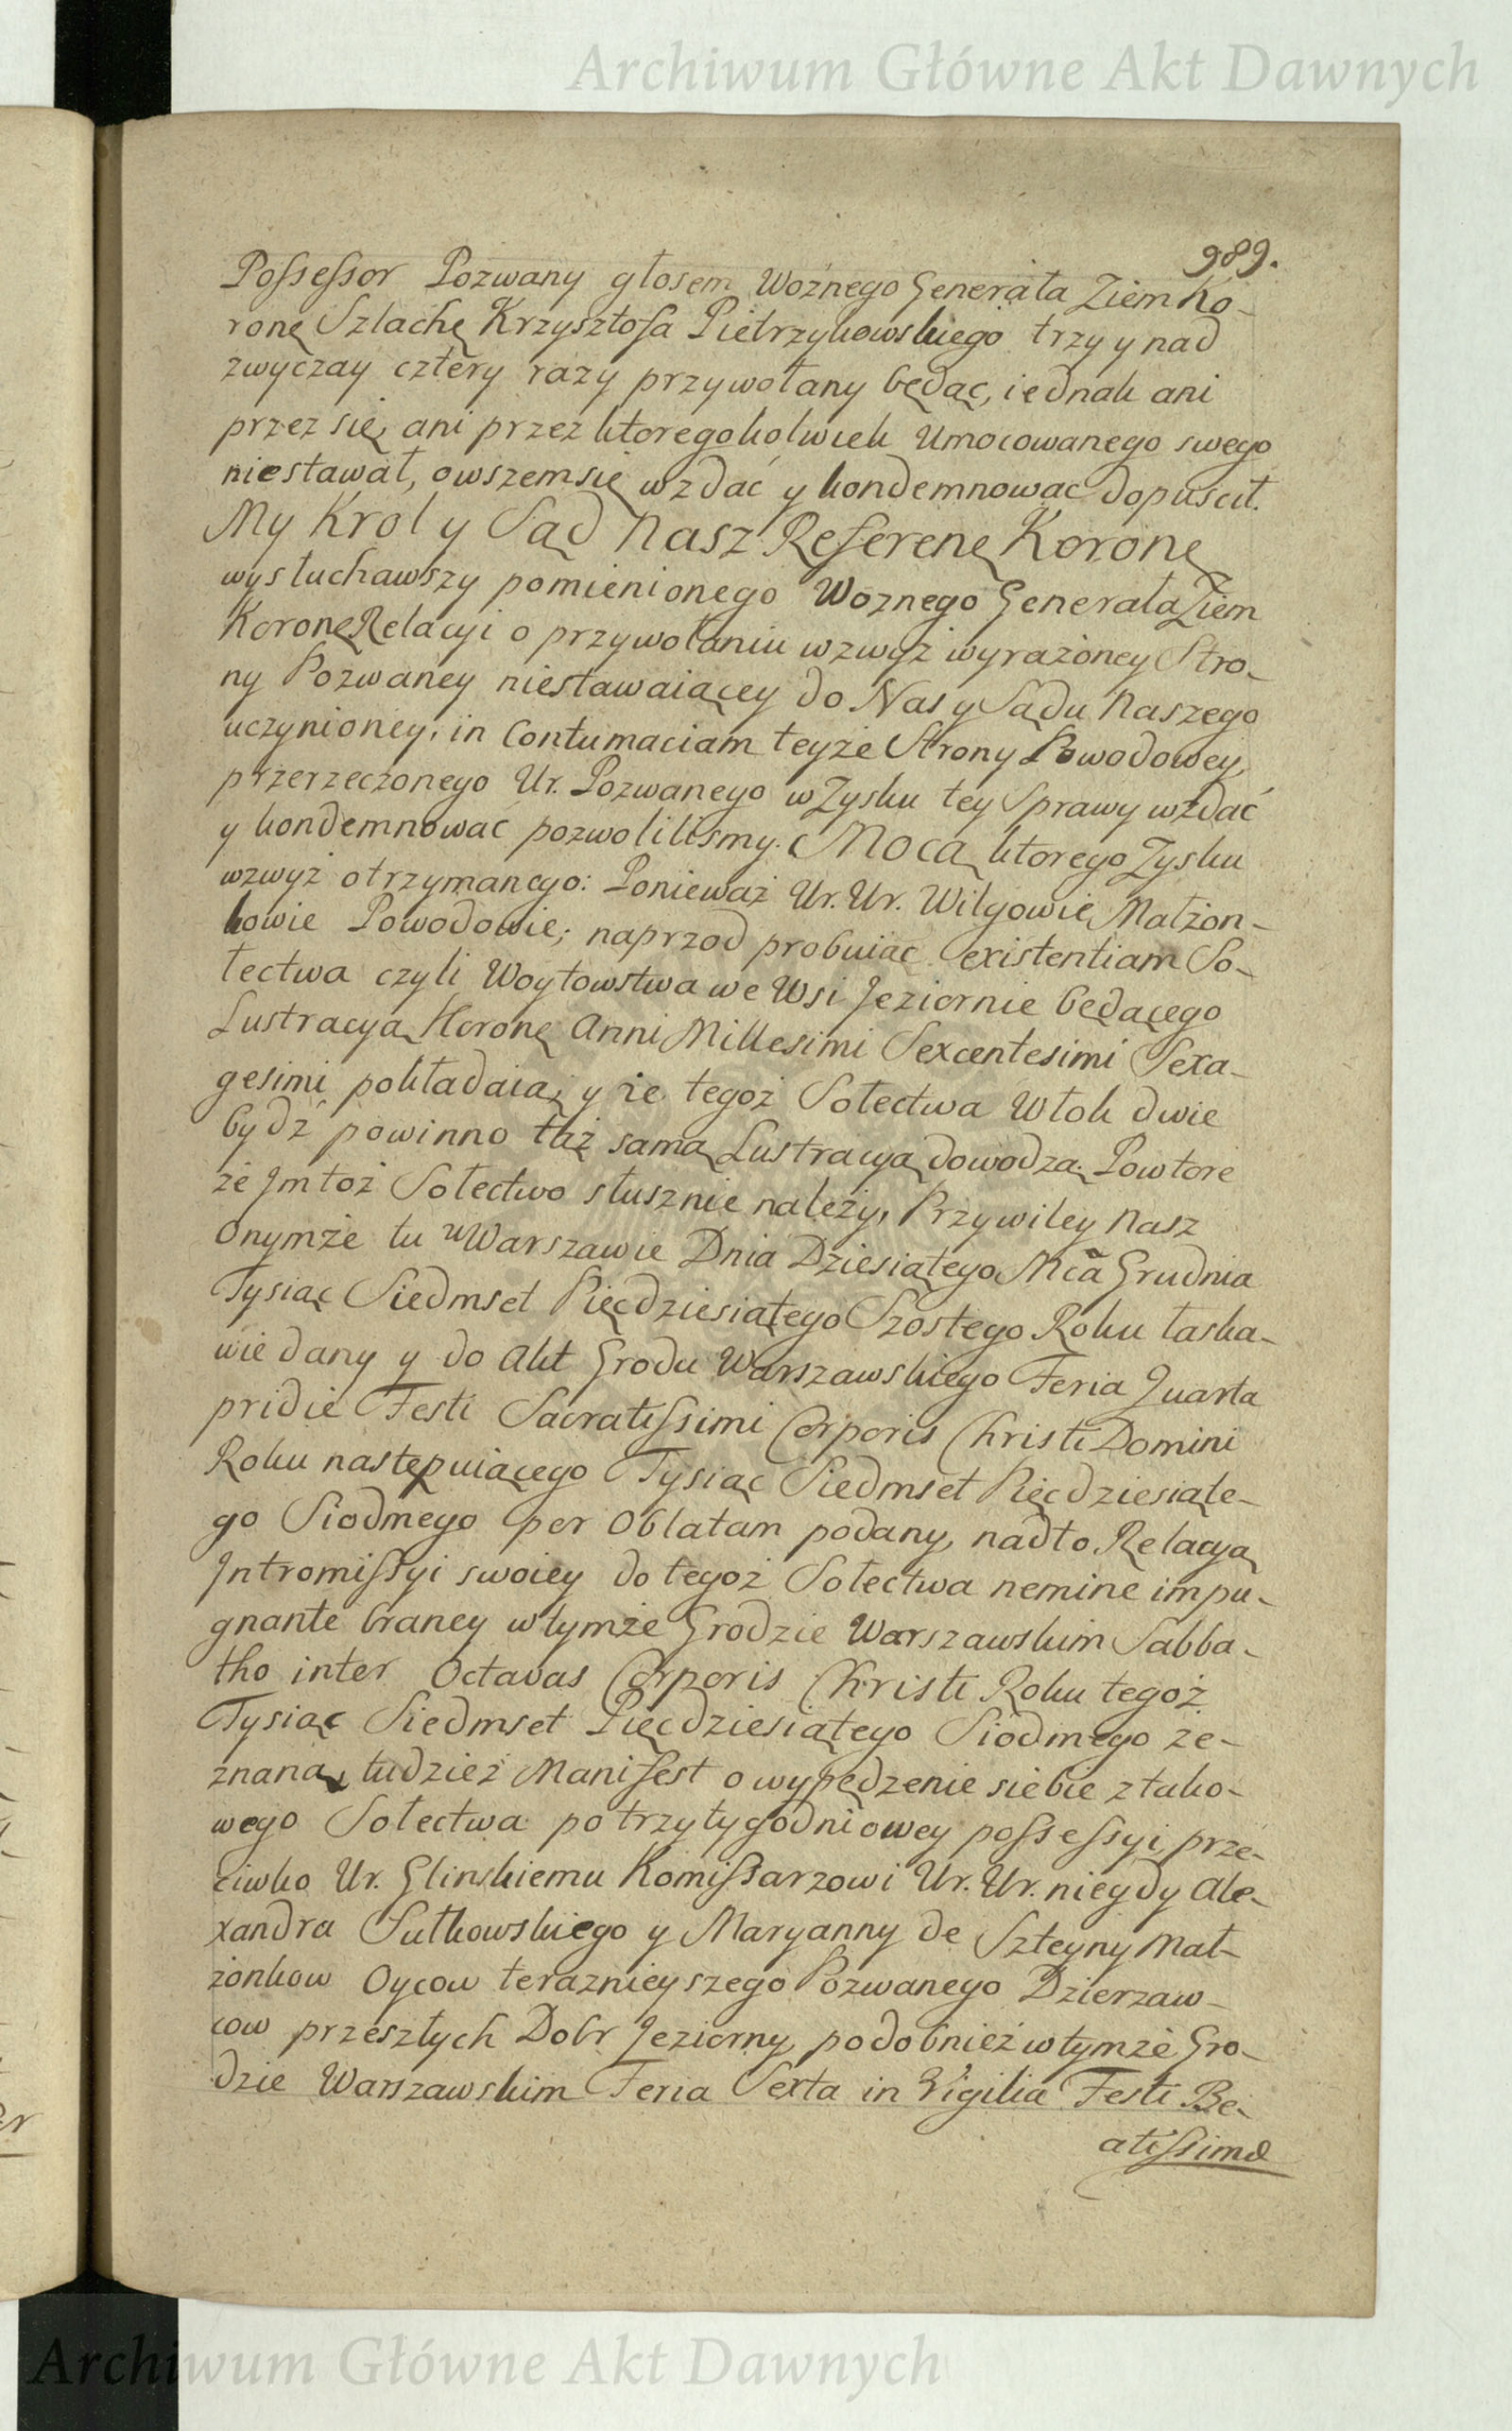 Archiwum Główne Akt Dawnych
989.
Possessor Pozwany głosem Woźnego Generała Ziem Ko-
ronę Szlachę Krzysztofa Pietrzykowskiego trzy y nad
zwyczay cztery razy przywołany będąc, iednak ani
przez się, ani przez ktoregokolwiek Umocowanego swego
niestawał, owszem się wzdać y kondemnować dopuscił.
My Krol y Sąd Nasz Referenę Koronę
wysłuchawszy pomienionego Woznego Generała Ziem
Koronę Relacyi o przywołaniu wzwyż wyrażoney Stro-
ny Pozwaney niestawaiącey do Nas y Sądu Naszego
uczynioney, in Contumaciam teyże Strony Powodowey,
przerzeczonego Ur. Pozwanego w Zysku tey Sprawy wzdać
y kondemnować pozwoliliśmy. Mocą ktorego Zysku
wzwyż otrzymanego: Ponieważ Ur. Ur. Wilgowie Małżon-
kowie Powodowie; naprzod probuiąc existentiam So-
łectwa czyli Woytowstwa we Wsi Jeziornie będącego
Lustracyą Koronę Anni Millesimi Sexcentesimi Sexa-
gesimi pokładaią, y że tegoż Sołectwa Włok dwie
bydź powinno taż samą Lustracyą dowodzą. Powtore
że Jm toż Sołectwo słusznie należy, Przywiley Nasz
Onymże tu w Warszawie Dnia Dziesiątego Mca Grudnia
Tysiąc Siedmset Pięcdziesiątego Szostego Roku łaska-
wie dany y do Akt Grodu Warszawskiego Feria Quarta
pridie Festi Sacratissimi Corporis Christi Domini
Roku następuiącego Tysiąc Siedmset Pięcdziesiąte-
go Siodmego per Oblatam podany, nadto Relacyą
Intromissyi swoiey do tegoż Sołectwa nemine impu-
gnante braney w tymże Grodzie Warszawskim Sabba-
tho inter Octavas Corporis Christi Roku tegoż
Tysiąc Siedmset Pięcdziesiątego Siodmego ze-
znaną, tudzież Manifest o wypędzenie siebie z tako-
wego Sołectwa po trzytygodniowey possessyi, prze-
ciwko Ur. Glinskiemu Komissarzowi Ur. Ur. niegdy Ale-
xandra Sułkowskiego y Maryanny de Szteyny Mał-
żonkow Oycow teraznieyszego Pozwanego Dzierzaw-
cow przeszłych Dobr Jeziorny, podobnież w tymże Gro-
dzie Warszawskim Feria Sexta in Vigilia Festi Be-
atissimæ
Archiwum Główne Akt Dawnych